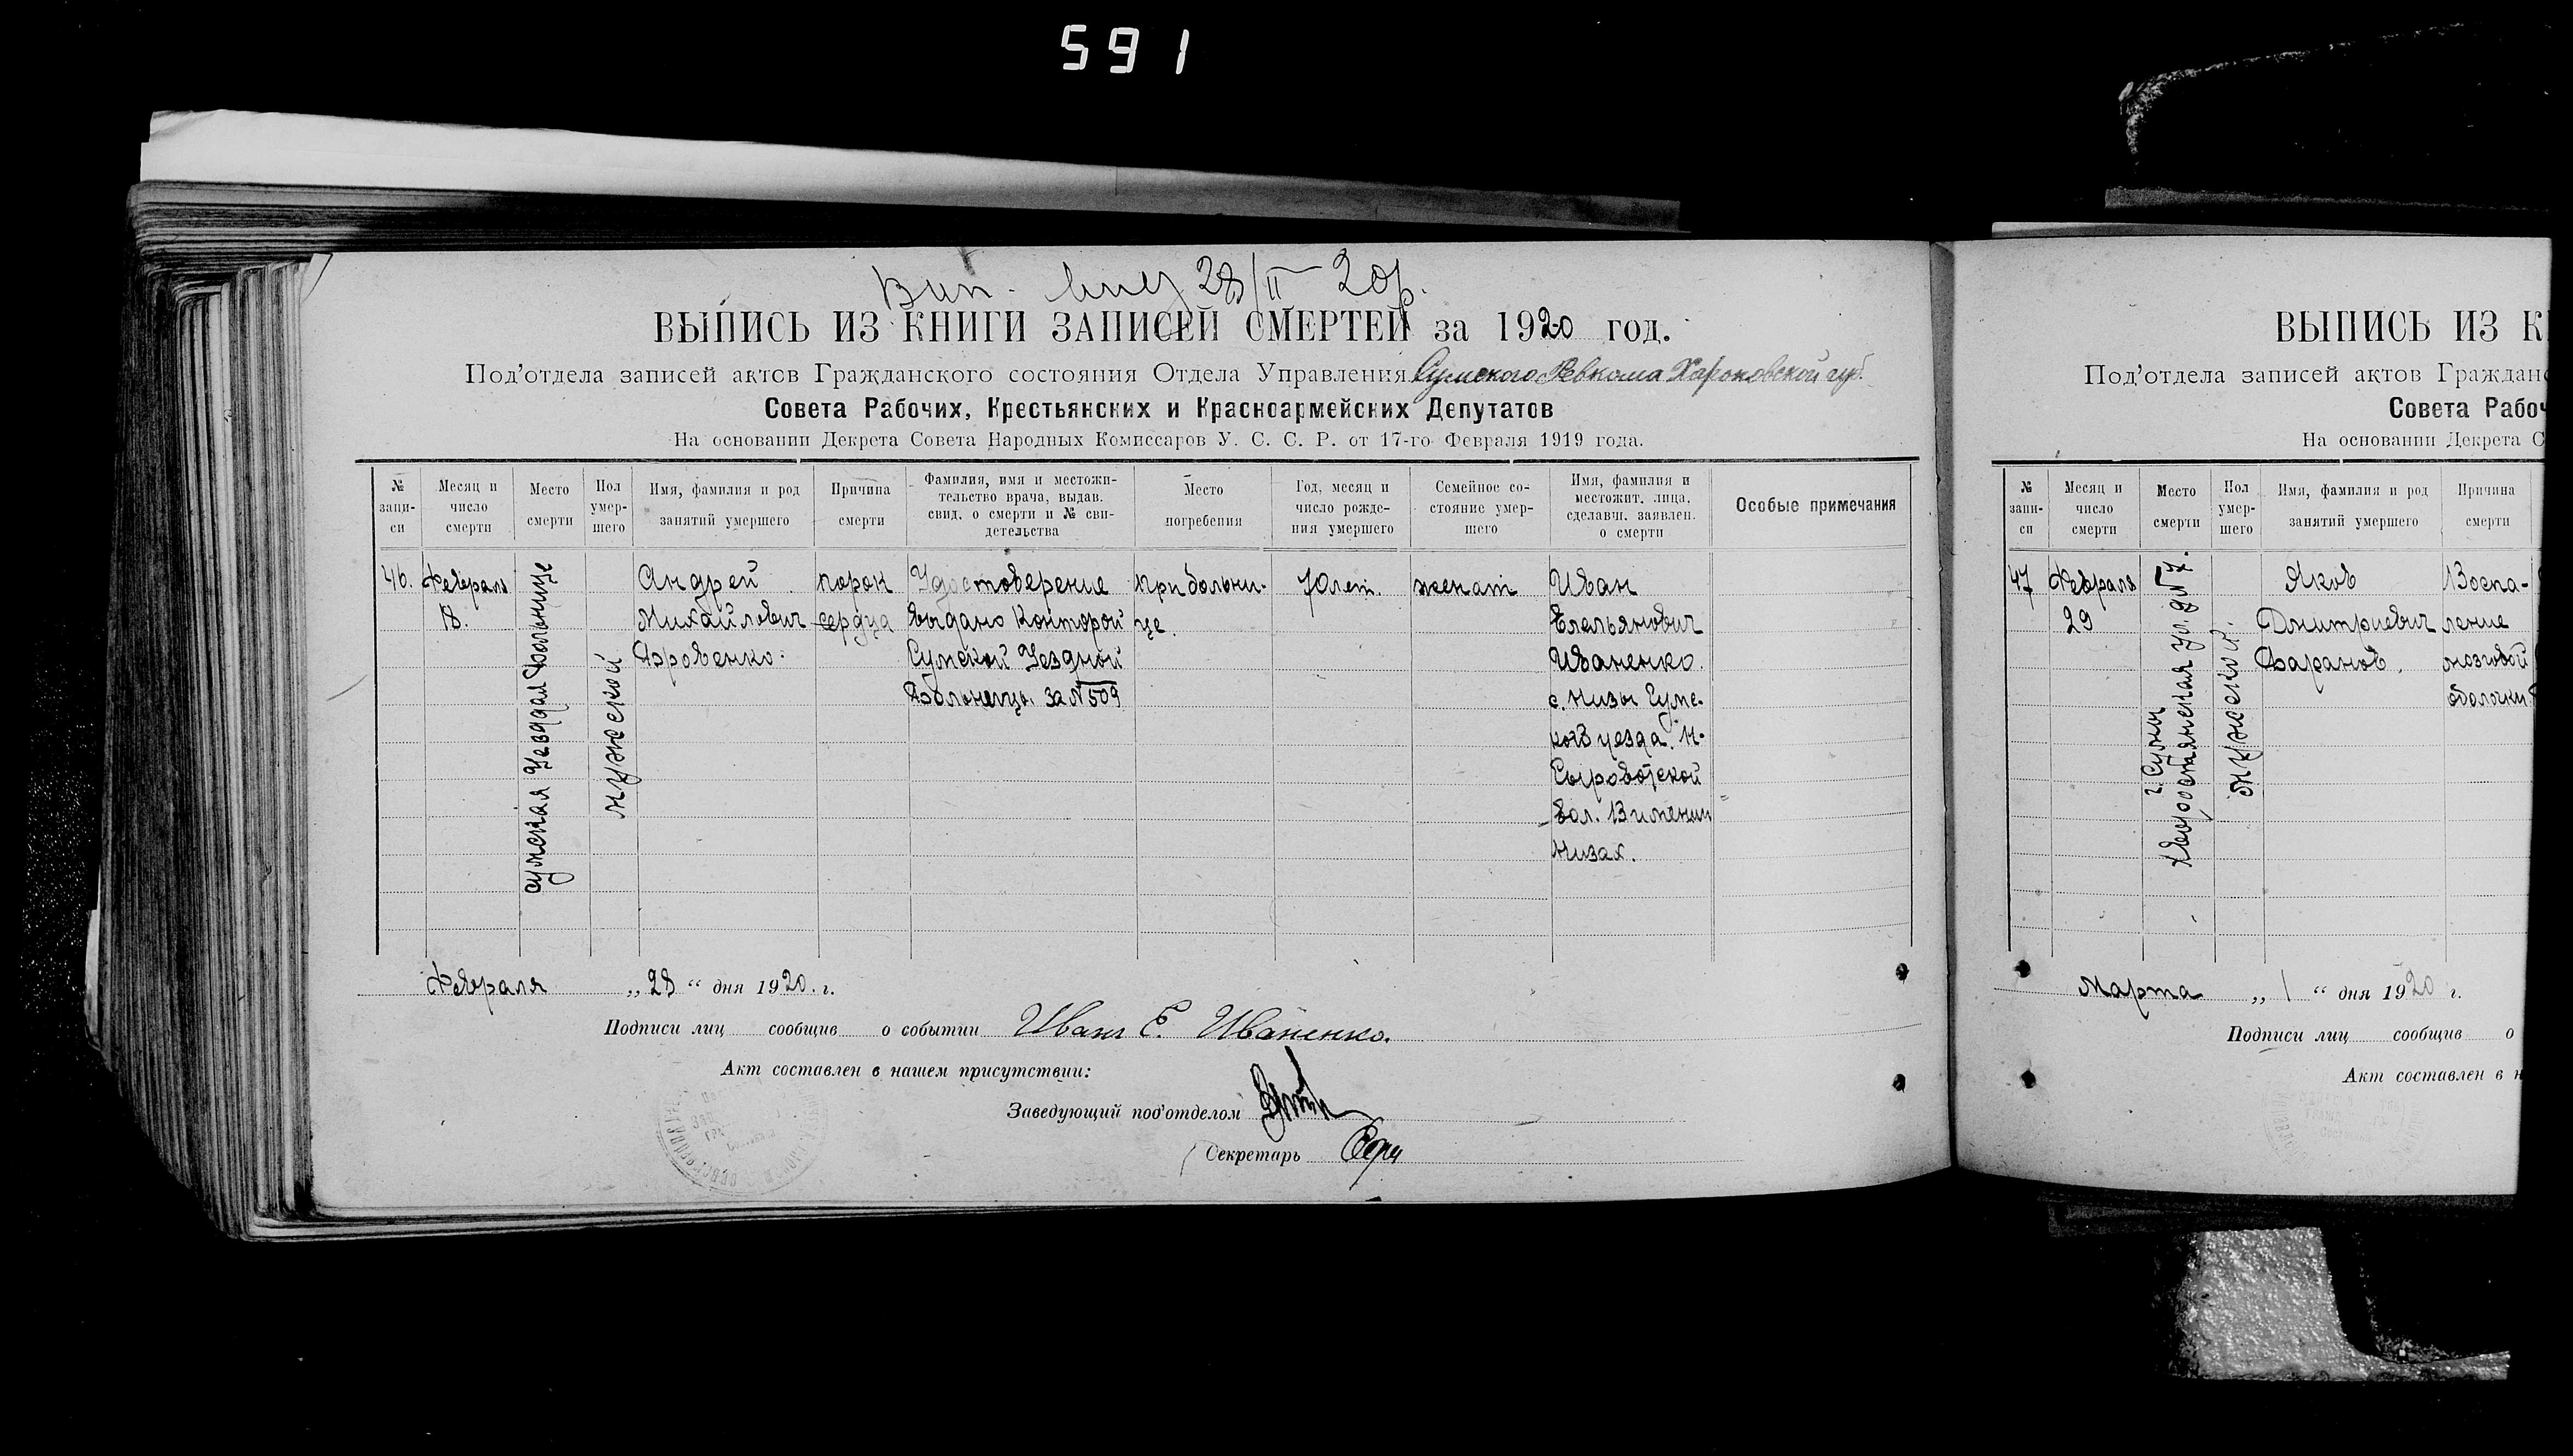 591
28/II 20р.
ВЫПИСЬ ИЗ КНИГИ ЗАПИСЕЙ СМЕРТЕЙ за 1920 год.
Под'отдела записей актов Гражданского состояния Отдела Управления Сумского Ревкома Харьковской губ.
Совета Рабочих, Крестьянских и Красноармейских Депутатов
На основании Декрета Совета Народных Комиссаров У. С. С. Р. от 17-го Февраля 1919 года.
№ запи-
си
Месяц и
число
смерти
Место
смерти
Пол
умер-
шего
Имя, фамилия и род
занятий умершего
Причина
смерти
Фамилия, имя и местожи-
тельство врача, выдав.
свид. о смерти и № сви-
детельства
Место
погребения
Год, месяц и
число рожде-
ния умершего
Семейное со-
стояние умер-
шего
Имя, фамилия и
местожит. лица,
сделавш. заявлен.
о смерти
Особые примечания
46.
Февраль
18.
Сумская Уездная Больнице
мужской
Андрей
Михайлович
порок
сердца
Удостоверение
выдано Конторой
Сумской Уездной
Больницы. за №509
При больни-
це.
70 лет.
женат
Иван
Емельянович
Иваненко.
с. Низы Сумс.
кого уезда. Н.
Сыроватской
вол. В имении
Низах.
Февраля „28“ дня 1920. г.
Подписи лиц сообщив о событии Иван Е. Иваненко.
Акт составлен в нашем присутствии:
Заведующий под'отделом
Секретарь
ВЫПИСЬ ИЗ К
Под'отдела записей актов Граждан
Совета Рабоч
На основании Декрета С
№
запи-
си
Месяц и
число
смерти
Место
смерти
Пол
умер-
шего
Имя, фамилия и род
занятий умершего
Причина
смерти
47
Февраль
29
г. Сумы
ул. д №7.
мужской.
Яков
Дмитриевич
Воспа-
ление
мозговой
оболочки
Марта „1“ дня 1920 г.
Подписи лиц сообщив о
Акт составлен в н